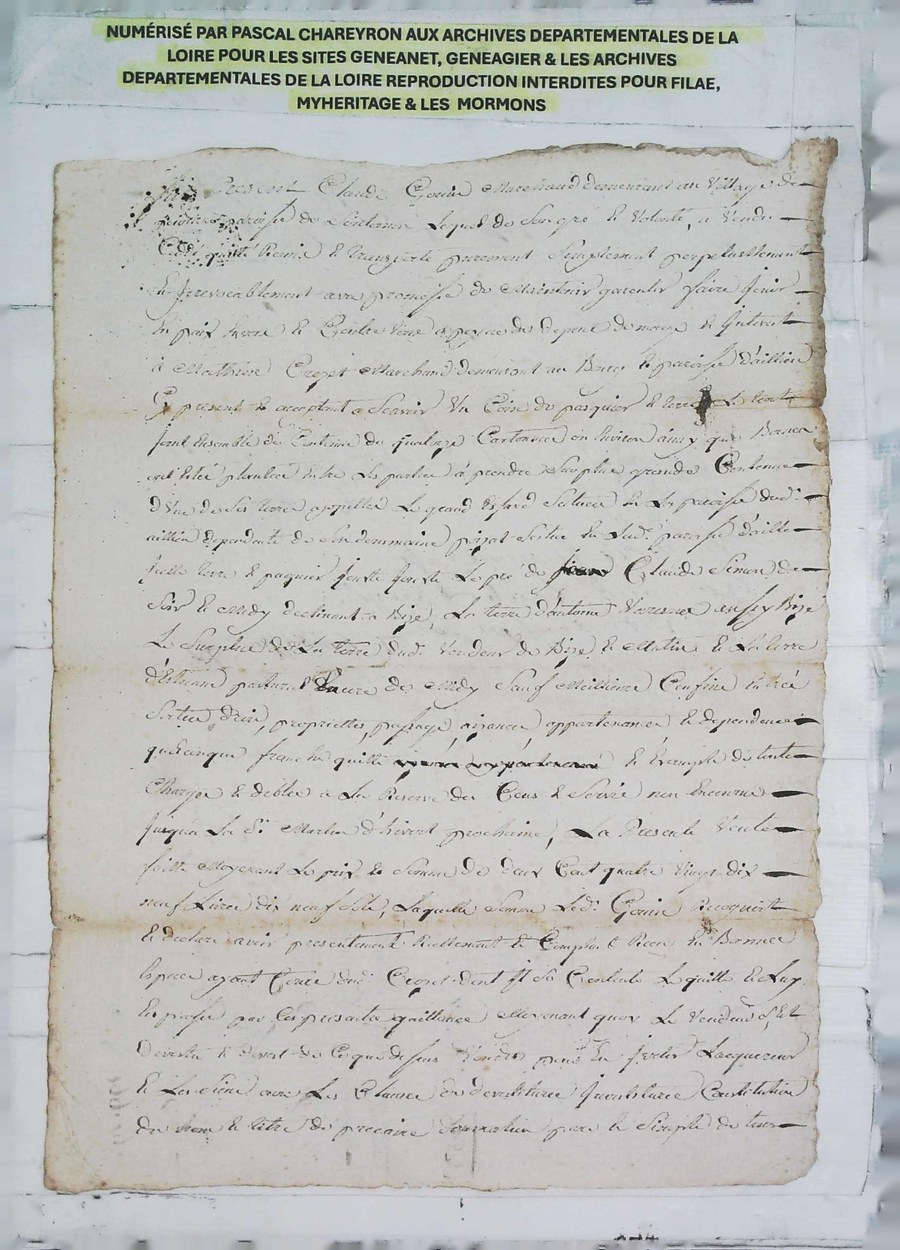 NUMÉRISÉ PAR PASCAL CHAREYRON AUX ARCHIVES DEPARTEMENTALES DE LA
LOIRE POUR LES SITES GENEANET, GENEAGIER & LES ARCHIVES
DEPARTEMENTALES DE LA LOIRE REPRODUCTION INTERDITES POUR FILAE,
MYHERITAGE & LES MORMONS
Present Claude Gonin Marchand demeurant au Village de
paroisse de Lequel de Son gré & Volonté, a Vendu
Cedé quitté Remis & transporté purement Simplement perpetuellement
& Jrrevocablement avec promesse de Maintenir garentir faire Jouir
en paix envers & Contre tous a peyne de depens domages & Jnterest
à Mathieu Crepet Marchand demeurant au Bourg & paroisse d'aillieu
Cy present & acceptant a Scavoir Un Coin de pasquier & terre Le tout
Joint Ensemble de Contenue de quatorze Cartonnées en Environ ainsy que Bornes
ont Eté plantées entre Les parties à prendre Sur plus grande Contenue
d'Une de Ses terres appellée Le grand Situées En La paroisse dud.
aillieu dependente de Son dommaine Scitué En Lad. paroisse d'aille
Jcelle terre & paquier Joute Le pré de Claude Simon de
Soir & Midy declinant a Bize, La terre d'antoine aussy Bize
Le Surplus de La terre dud. Vendeur de Bize & Matin & La terre
d'Etienne de Midy Sauf Meillieurs Confins Entrées
Sorties droits, proprietés, passage aizances appartenances & dependences
quelconque franche quitte & Exempte de toute
Charges & debtes a La Reserve des Cens & Servis non Encourus
Jusqu'a La St Martin d'hivert prochaine, La Presente Vente
faitte Moyenant Le prix & Somme de deux Cent quatre Vingt dix
neuf Livres dix neuf Sols, Laquelle Somme Led. Gonin
& declare avoir presentement Reellement & Comptant Receu En Bonnes
Espece ayant Cours dud. Crepet dont Jl Se Contente Le quitte & Luy
En passe par Ces presentes quittance Moyenant quoy Le Vendeur S'Est
Devestu & devest de Ce que dessus Vendus pour En Jnvestir Lacquereur
& Les Siens avec Les Clauses de devestitures Jnvestitures Constitution
du nom & titre de precaire